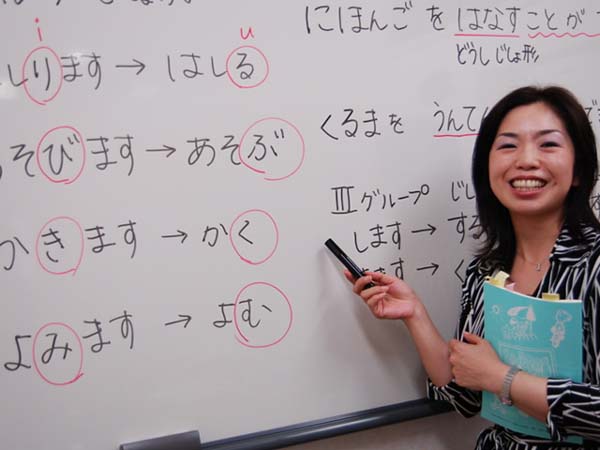 i u
します → はしる
そびます → あそぶ
かきます → かく
よみます → よむ
にほんごを はなすことが
どうしじしょ形
くるまを うんてん
IIIグループ じし
します → する
ます → く